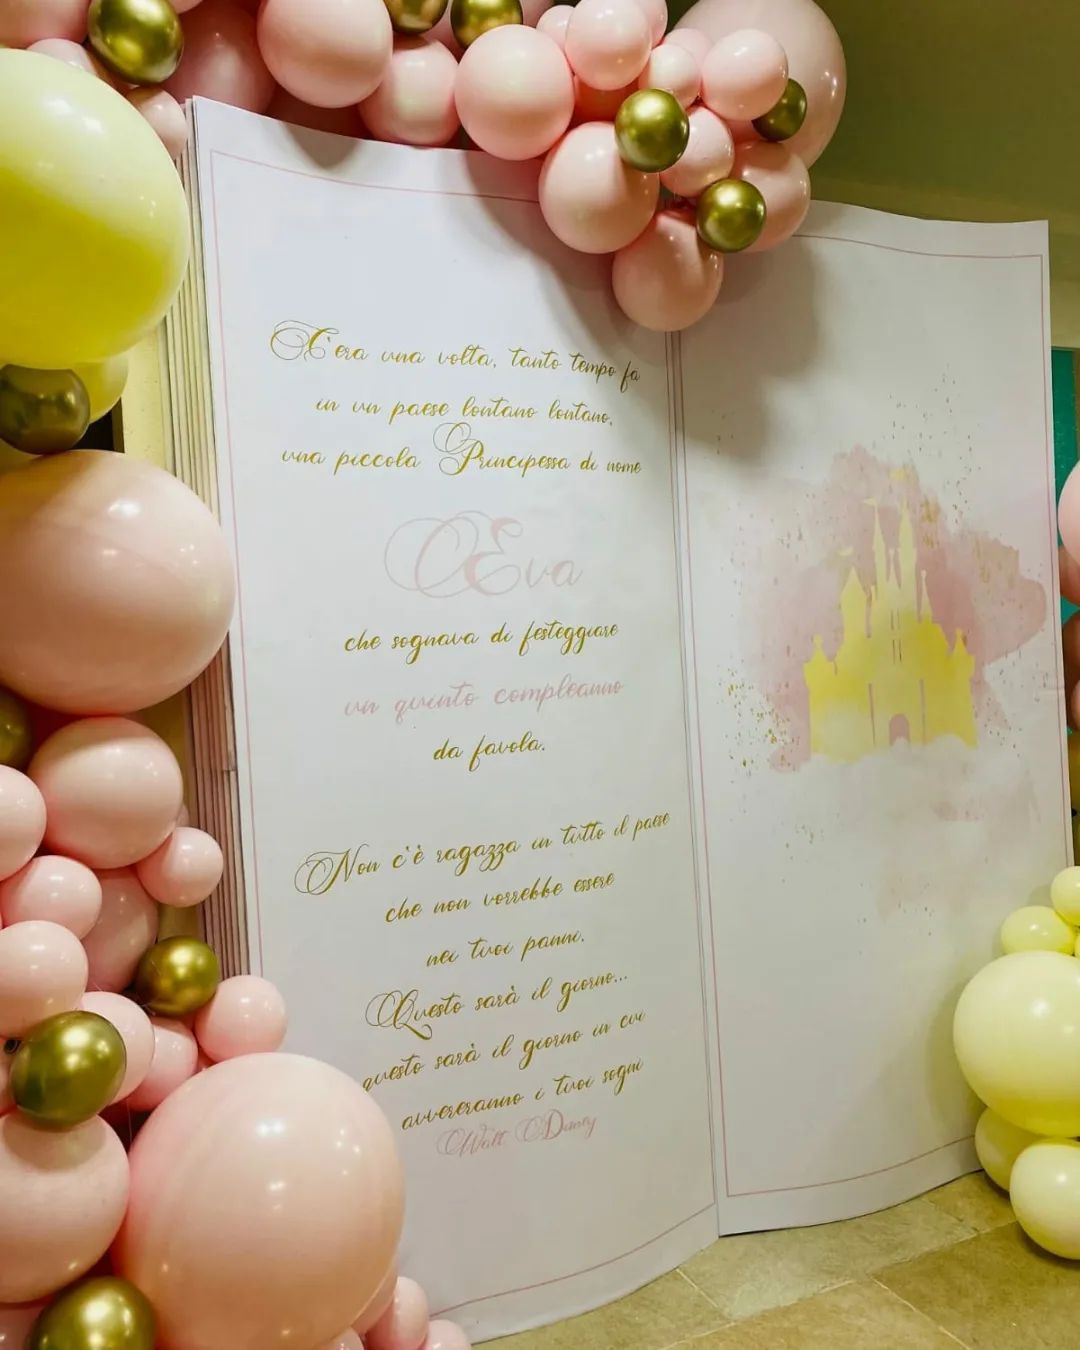 C'era una volta, tanto tempo fa
in un paese lontano lontano,
una piccola Principessa di nome
Eva
che sognava di festeggiare
un quinto compleanno
da favola.
Non c'è ragazza in tutto il paese
che non vorrebbe essere
nei tuoi panni.
Questo sarà il giorno...
questo sarà il giorno in cui
avvereranno i tuoi sogni
Walt Disney